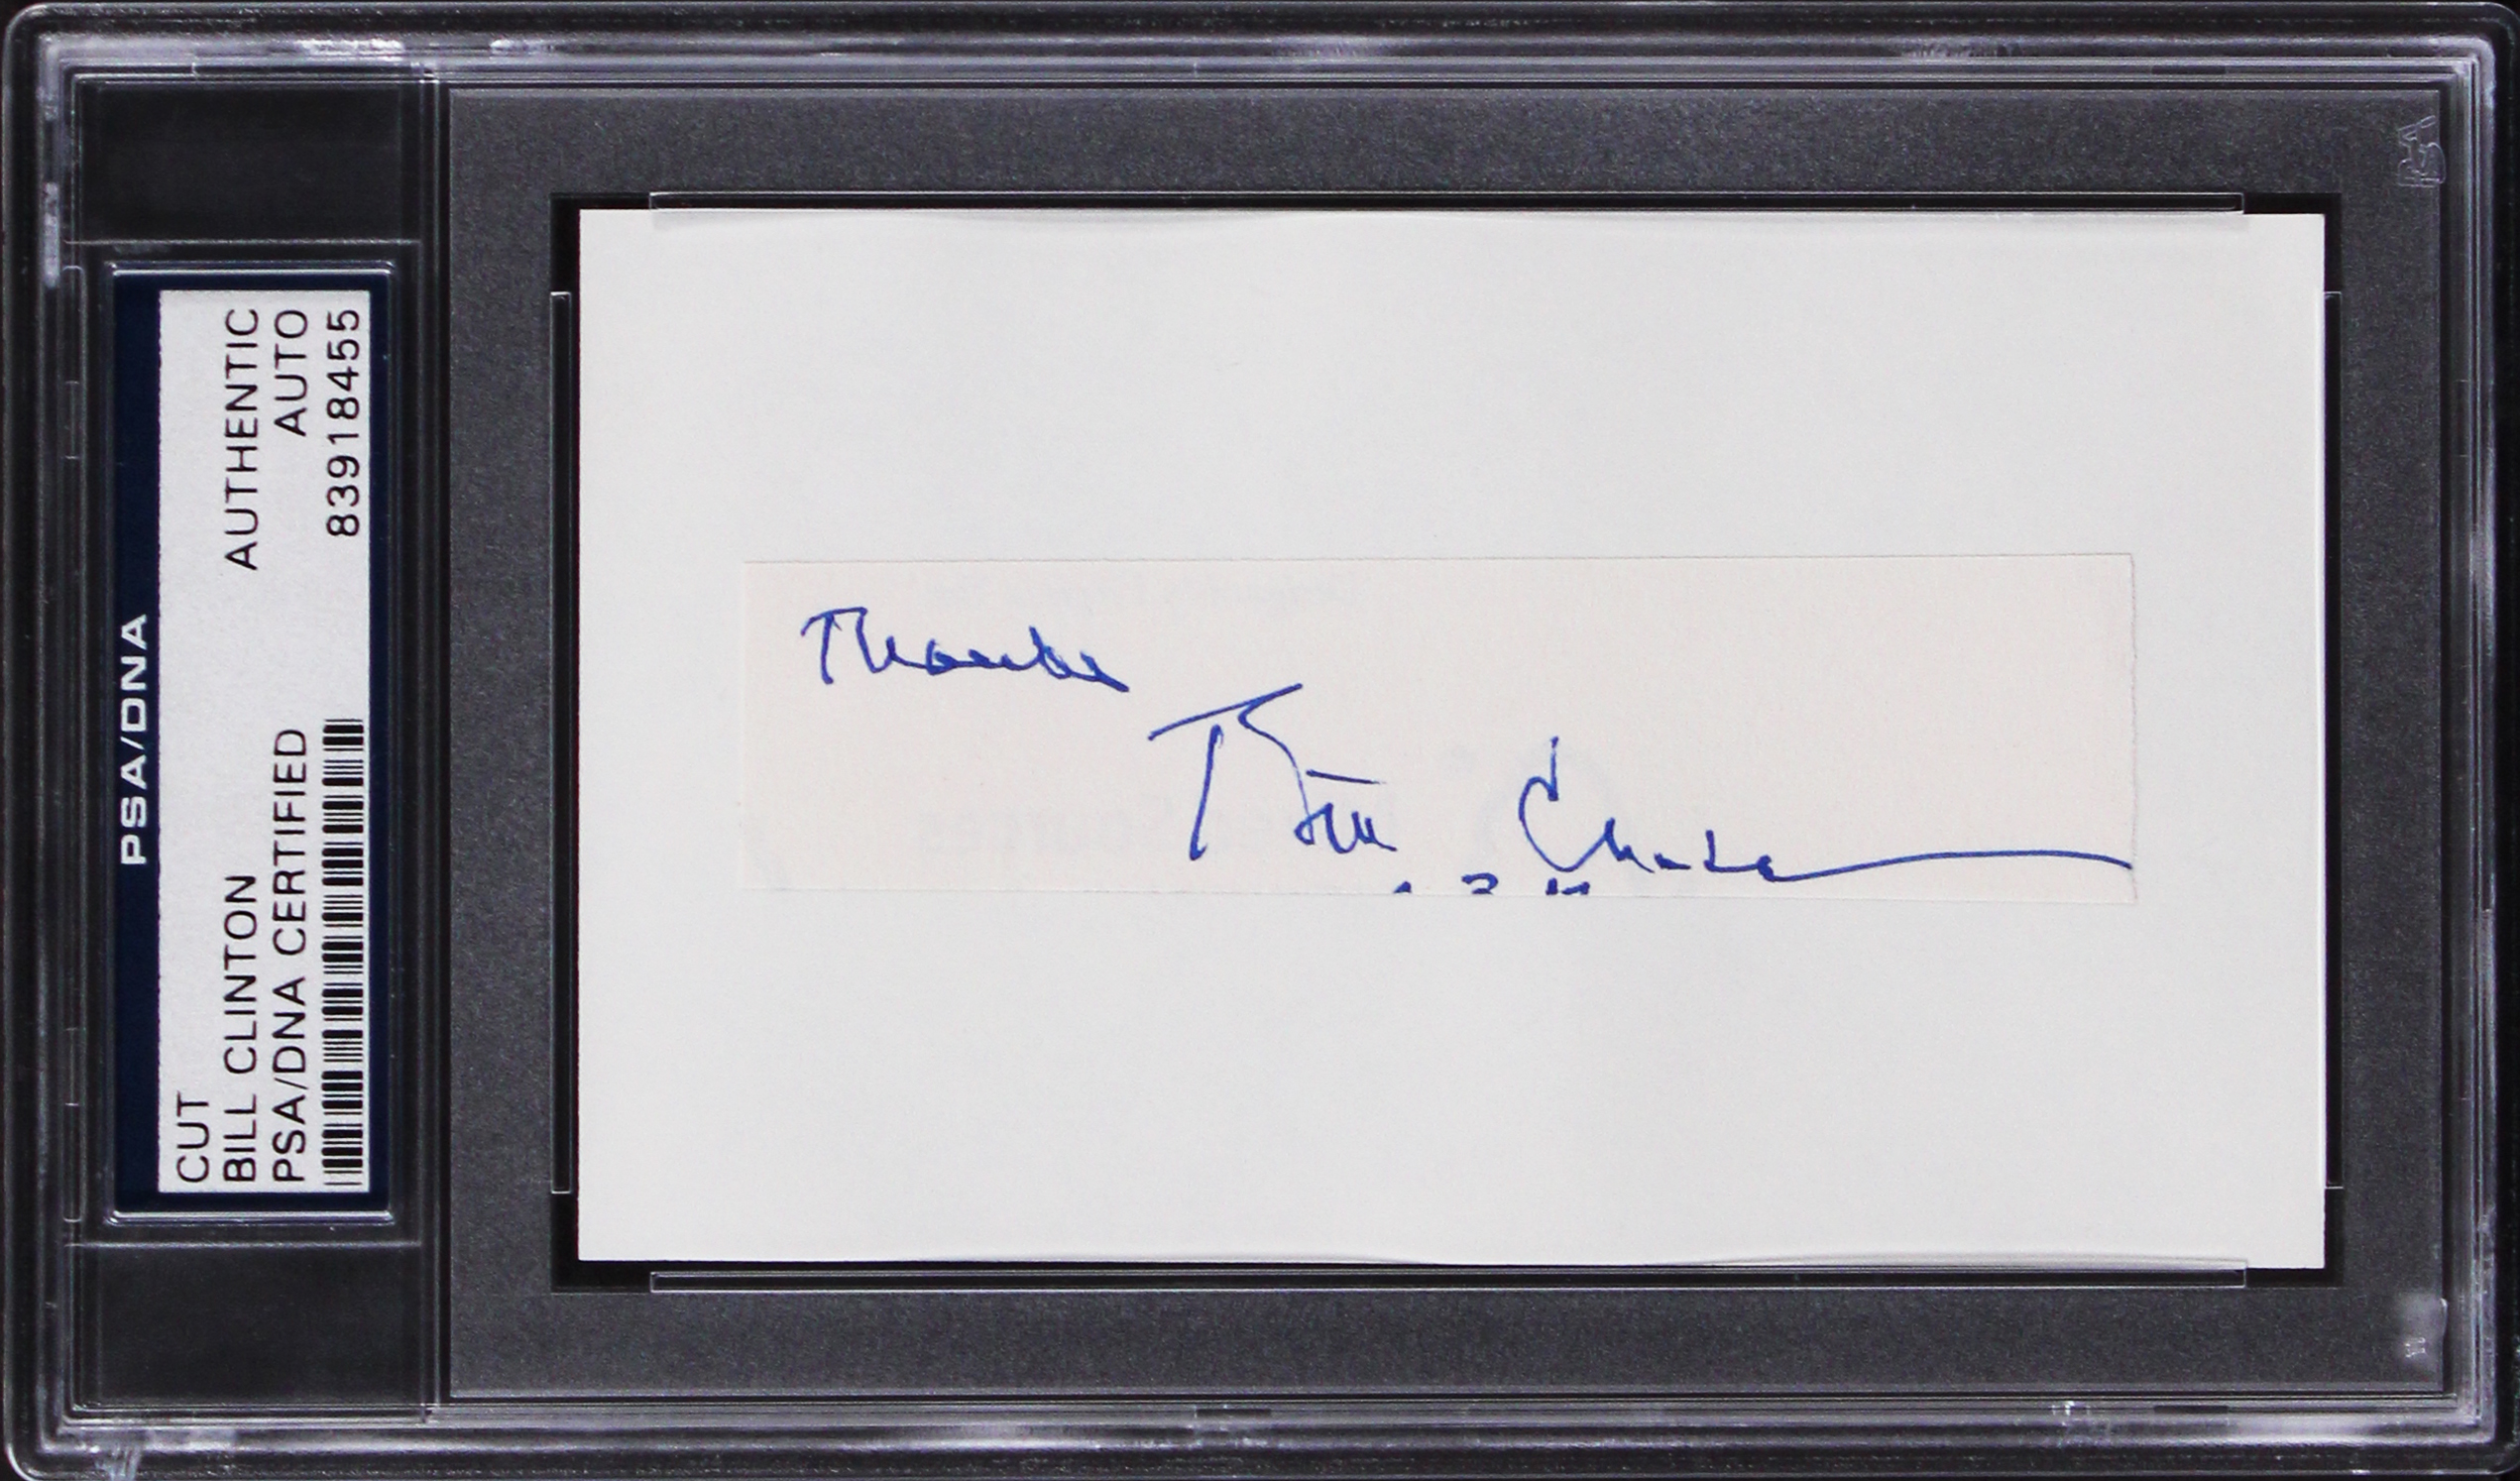 PSA/DNA
CUT
BILL CLINTON AUTHENTIC
PSA/DNA CERTIFIED AUTO
83918455
Thanks
Bill Clinton
PSA